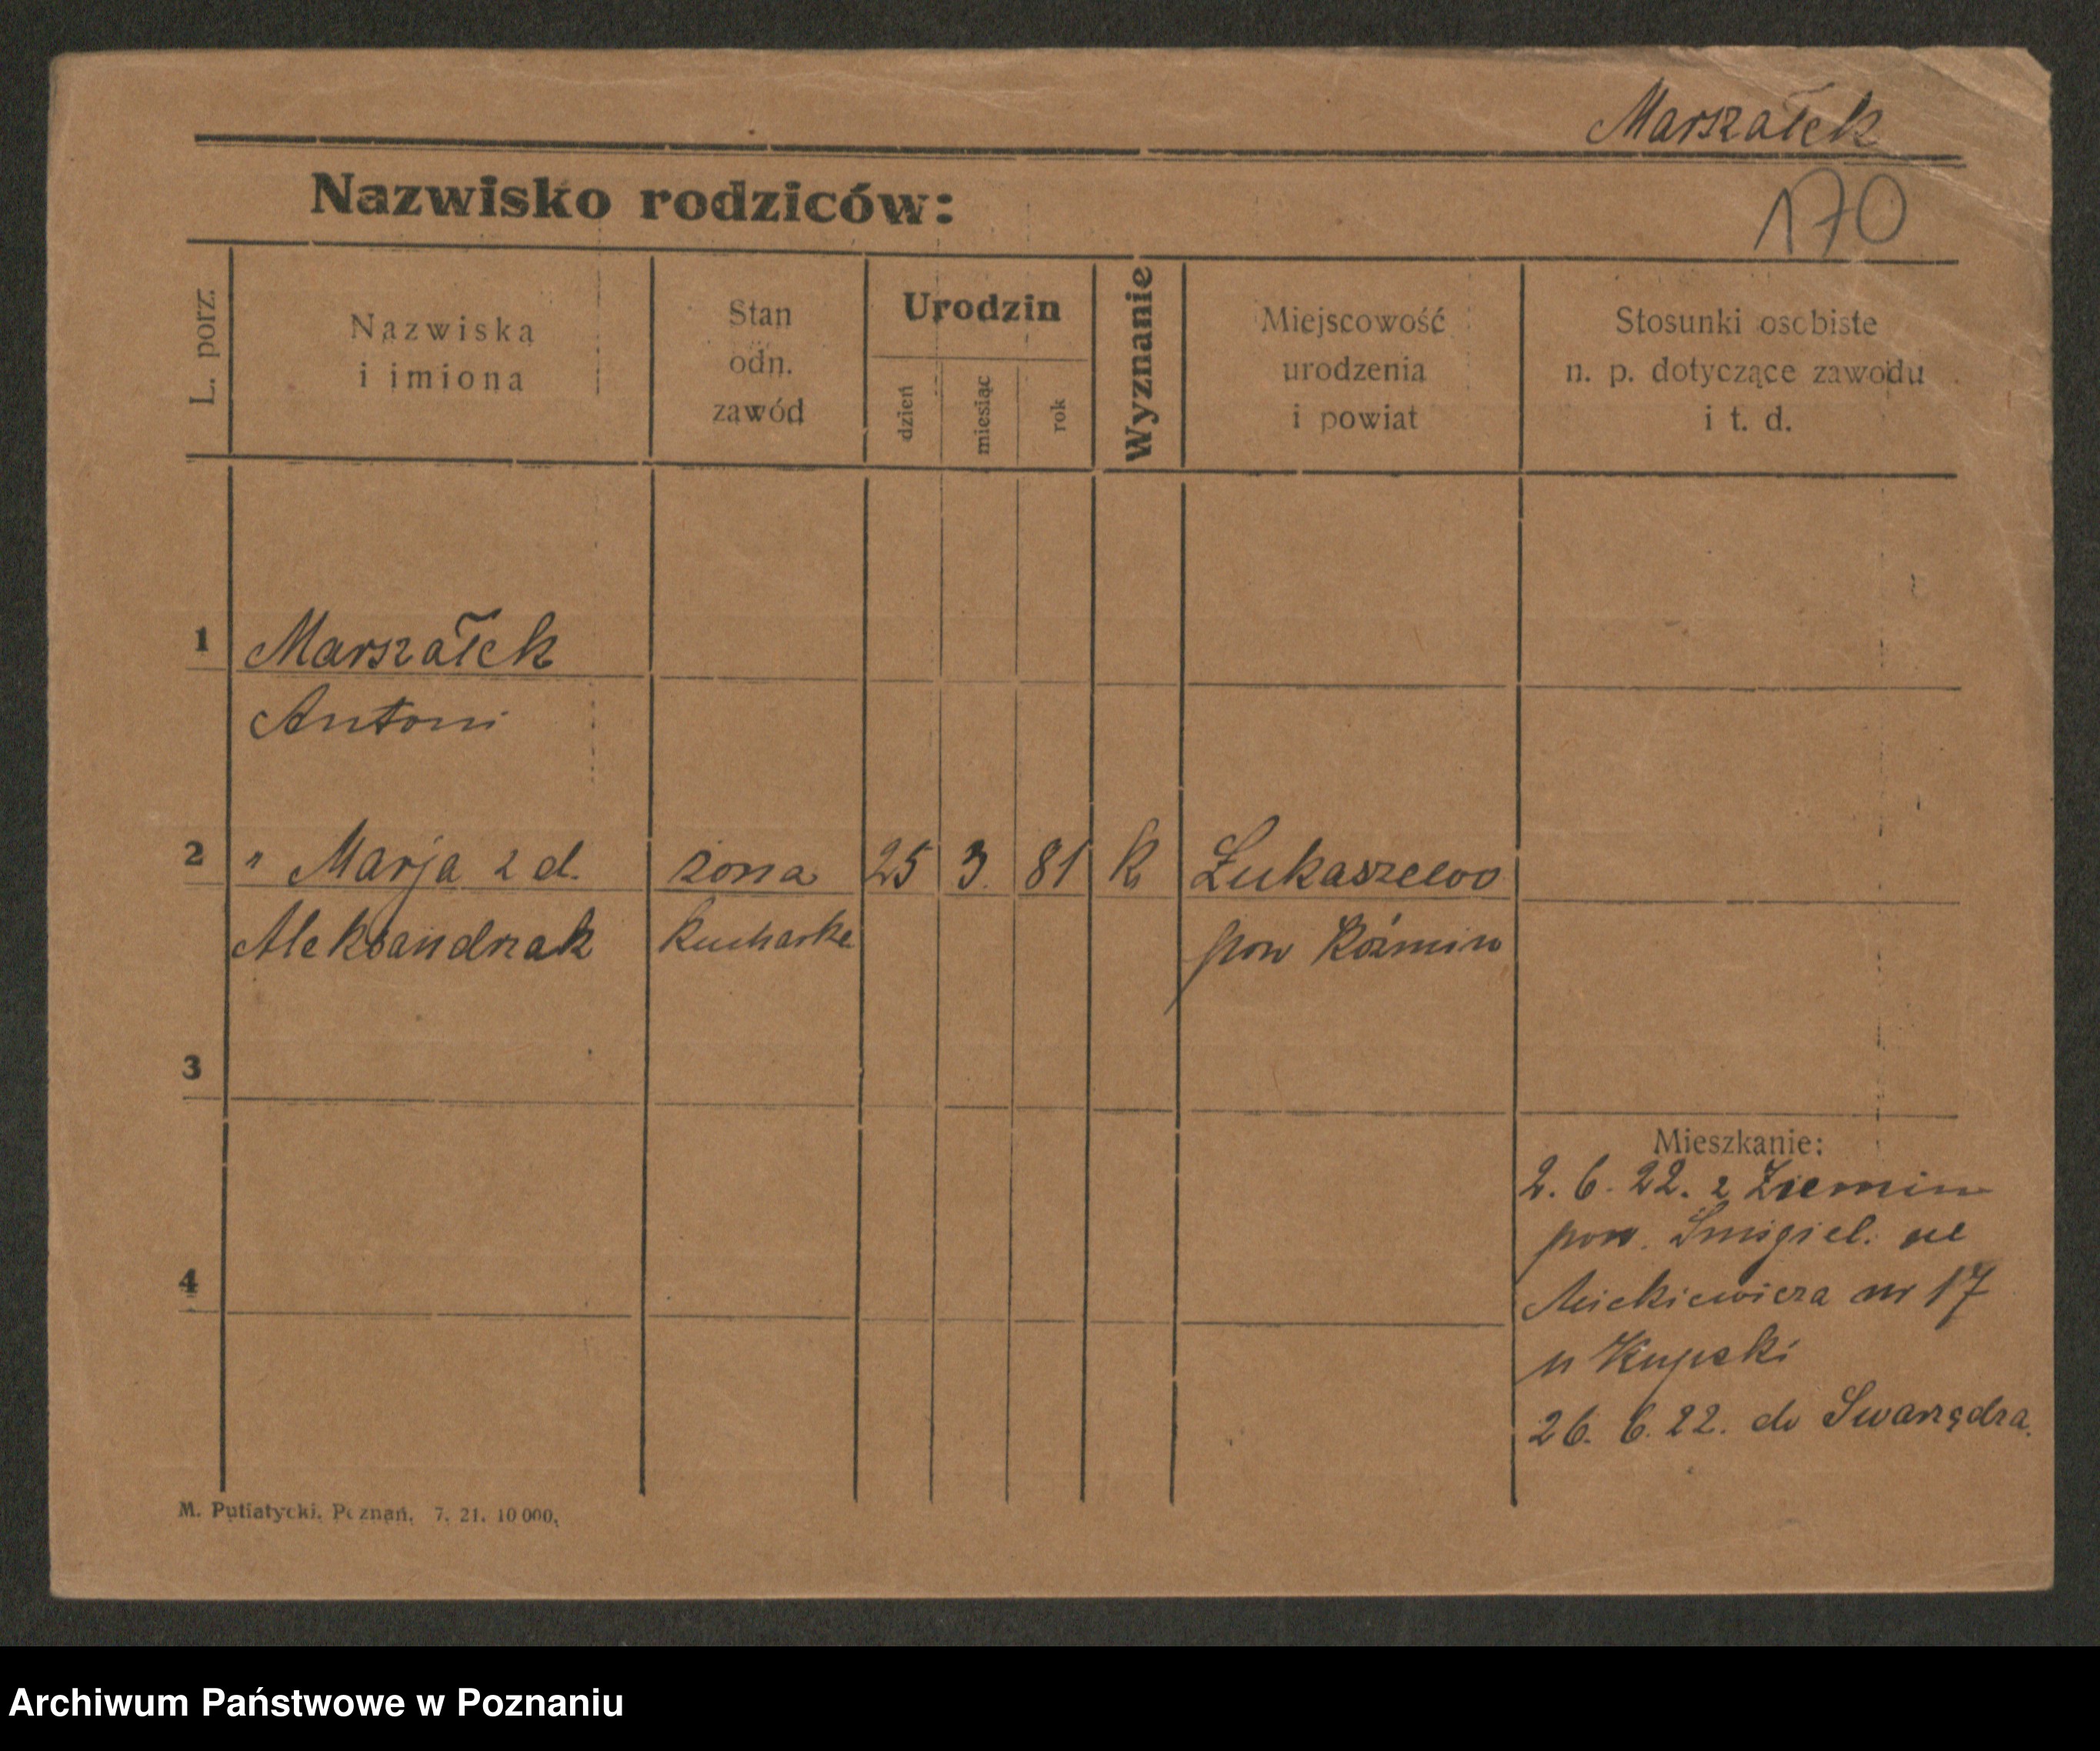 Marszałek
170
Nazwisko rodziców:
L. porz.
Nazwiska
i imiona
Stan
odn.
zawód
Urodzin
dzień
miesiąc
rok
Wyznanie
Miejscowość
urodzenia
i powiat
Stosunki osobiste
n. p. dotyczące zawodu
i t. d.
1 Marszałek
Antoni
2 " Marja z d. żona 25 3. 81 k Łukaszewo
Aleksandrzak kucharka pow Koźmin
3
Mieszkanie:
2. 6. 22. z Ziemin
pow. Śmigiel. ul
4
Mickiewicza nr 17
u Kupski
26. 6. 22. do Swarzędza.
M. Putiatycki, Poznań, 7. 21. 10 000.
Archiwum Państwowe w Poznaniu